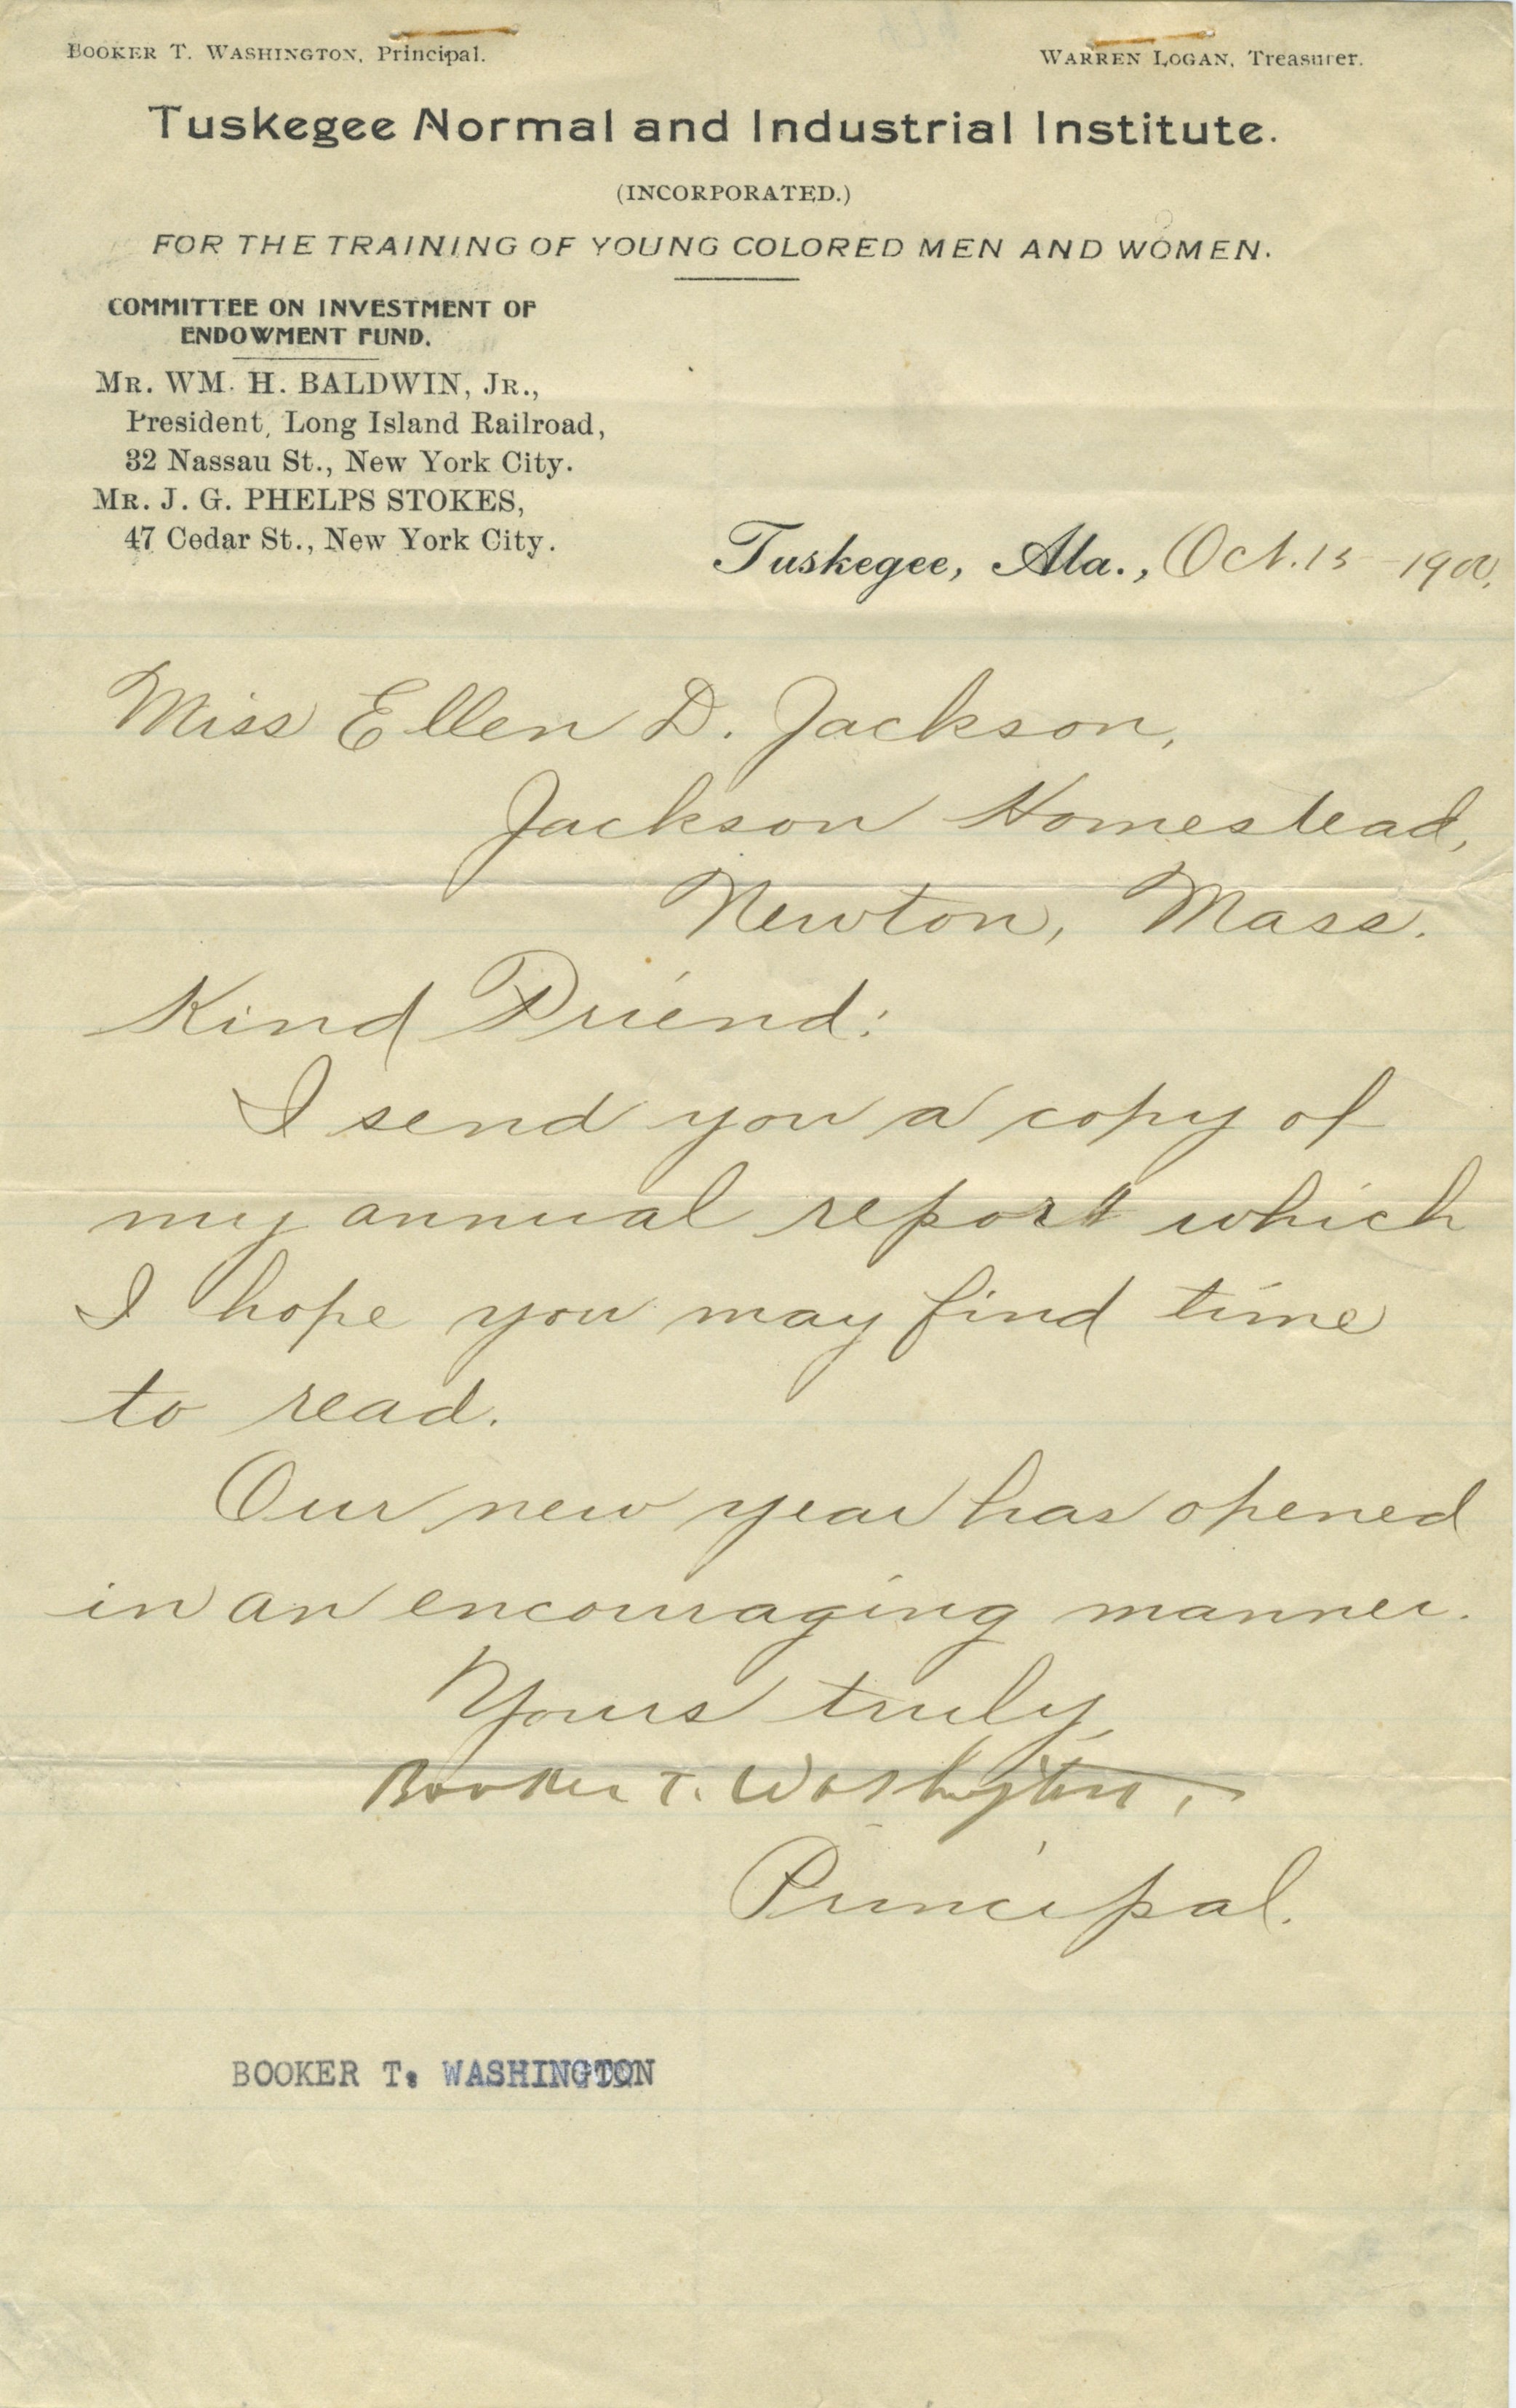 BOOKER T. WASHINGTON, Principal.
WARREN LOGAN, Treasurer.
Tuskegee Normal and Industrial Institute.
(INCORPORATED.)
FOR THE TRAINING OF YOUNG COLORED MEN AND WOMEN.
COMMITTEE ON INVESTMENT OF
ENDOWMENT FUND.
MR. WM. H. BALDWIN, JR.,
President, Long Island Railroad,
32 Nassau St., New York City.
MR. J. G. PHELPS STOKES,
47 Cedar St., New York City.
Tuskegee, Ala., Oct. 15 - 1900.
Miss Ellen D. Jackson,
Jackson Homestead,
Newton, Mass.
Kind Friend:
I send you a copy of
my annual report which
I hope you may find time
to read.
Our new year has opened
in an encouraging manner.
Yours truly,
Booker T. Washington,
Principal.
BOOKER T. WASHINGTON